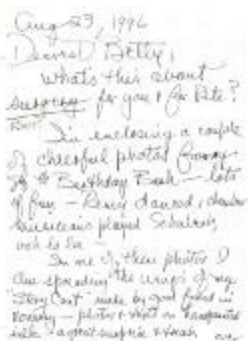 Aug 23, 1996
Dearest Betty,
What's this about
surgery for you & for Pete?
I'm enclosing a couple
of cheerful photos from
Birthday Bash — lots
of fun — danced, chamber
musicians played Schubert,
ooh la la —
In one of these photos I
am spreading the wings of my
"Story Coat" made by good friend in
— photos & text on
silk — a great surprise &
over